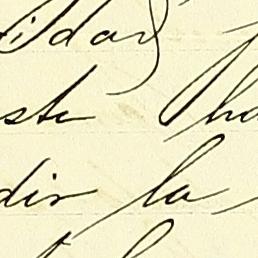 idad
ste ha
dir la